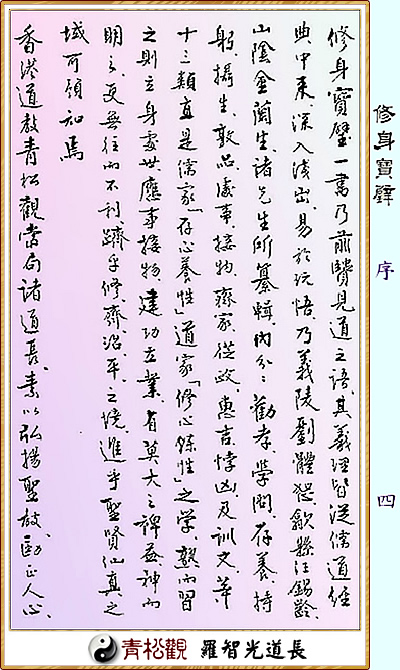 修身寶璧 序 四
修身寶璧一書乃前賢見道之語其義理皆從儒道經
典中來、深入淺出、易於玩悟、乃義陵劉體恕、歙縣汪錫齡、
山陰金蘭生、諸先生所纂輯、內分：勸孝、學問、存養、持
躬、攝生、敦品、處事、接物、齊家、從政、惠吉悖凶、及訓文等
十三類、直是儒家「存心養性」道家「修心煉性」之學、熟而習
之則立身處世、應事接物、建功立業、有莫大之裨益、神而
明之、更無往而不利、躋乎修、齊、治、平之境、進乎聖賢仙真之
域可預知焉
香港道教青松觀當局諸道長、素以弘揚聖教、正人心、
青松觀 羅智光道長